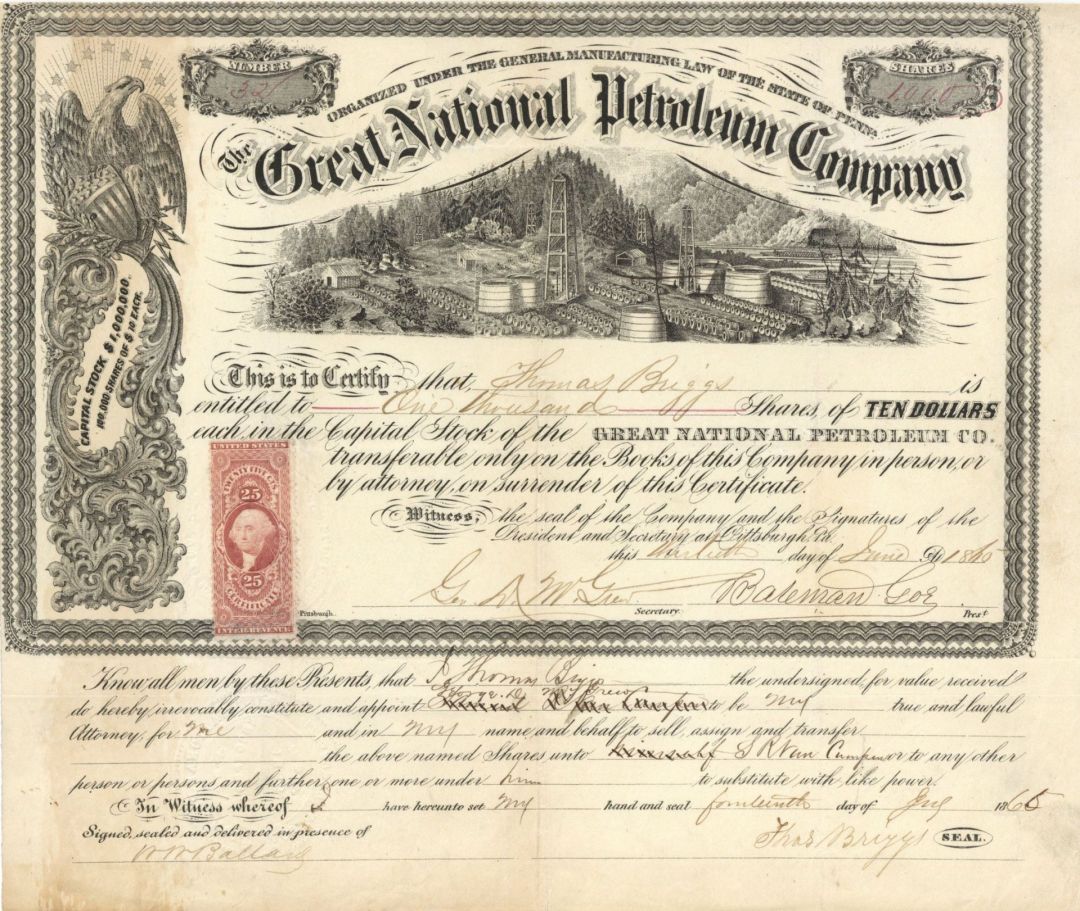 NUMBER
321
ORGANIZED UNDER THE GENERAL MANUFACTURING LAW OF THE STATE OF PENNA
SHARES
1000
The Great National Petroleum Company
CAPITAL STOCK $1,000,000.
100,000 SHARES OF $10 EACH.
This is to Certify that Thomas Briggs is
entitled to One thousand Shares, of TEN DOLLARS
each in the Capital Stock of the GREAT NATIONAL PETROLEUM CO.
transferable only on the Books of this Company in person, or
by attorney, on surrender of this Certificate.
Witness, the seal of the Company and the Signatures of the
President and Secretary at Pittsburgh, Pa.
this day of June 1865
Geo. D. McGrew Secretary. Bateman Goe Prest
Pittsburgh.
UNITED STATES
25
25
CERTIFICATE
INTER. REVENUE.
Know all men by these Presents, that I Thomas Briggs the undersigned, for value received
George D. McGrew
do hereby irrevocably constitute and appoint to be My true and lawful
Attorney, for Me and in My name and behalf to sell, assign and transfer
the above named Shares unto S R Van Campen or to any other
person or persons and further one or more under him to substitute with like power.
In Witness whereof I have hereunto set My hand and seal fourteenth day of 1865
Signed, sealed and delivered in presence of
Thos Briggs SEAL.
W W Ballard